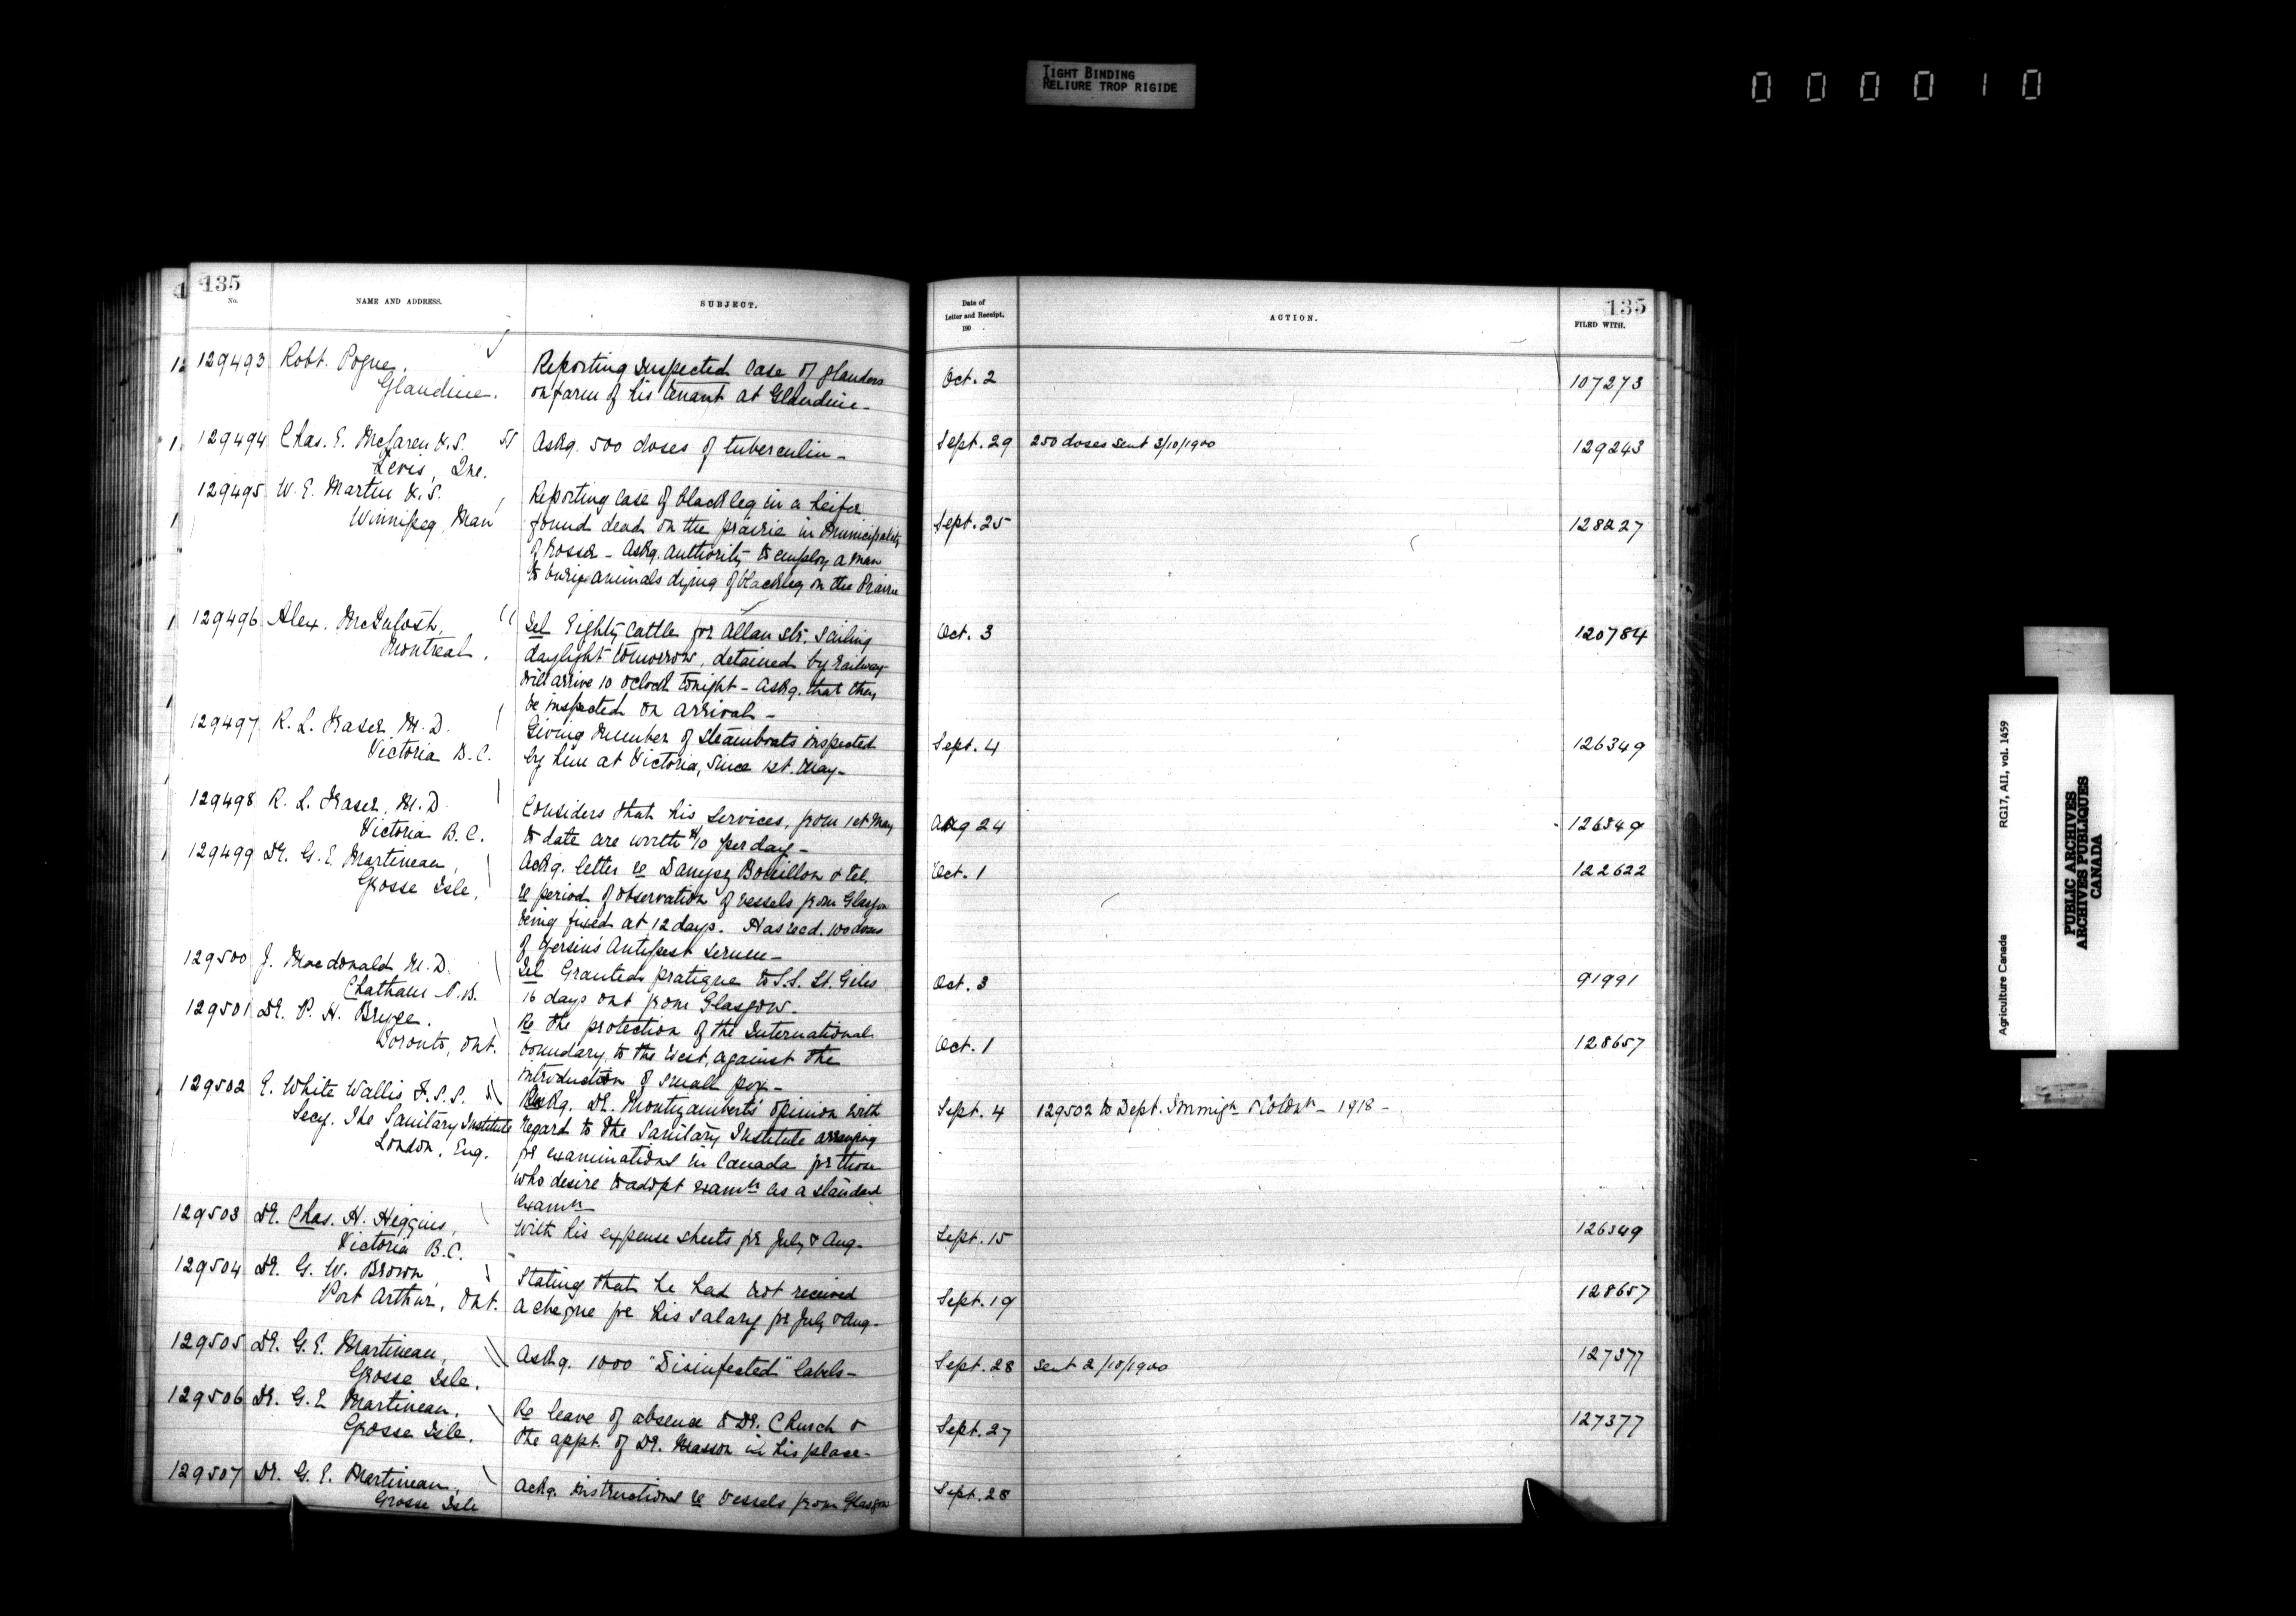 TIGHT BINDING
RELIURE TROP RIGIDE
000010
135
No.
NAME AND ADDRESS.
SUBJECT.
Date of
Letter and Receipt,
190
ACTION.
135
FILED WITH.
129493 Robt. Pogue, Reporting suspected case of glanders Oct. 2 107273
Glandine. on farm of his tenant at Glandine -
129494 Chas. E. McLaren V.S. Askg. 500 doses of tuberculin - Sept. 29 250 doses sent 3/10/1900 129243
Levis, Que.
129495 W. E. Martin V.S. Reporting case of black leg in a heifer
Winnipeg, Man found dead on the prairie in Municipality Sept. 25 128227
of Rosser - Askg. authority to employ a man
to bury animals dying of blackleg on the Prairie
129496 Alex. McIntosh, Tel Eighty cattle for Allan str. sailing Oct. 3 120784
Montreal. daylight tomorrow, detained by railway
will arrive 10 oclock tonight - Askg. that they
be inspected on arrival -
129497 R. L. Fraser M.D. Giving number of steamboats inspected Sept. 4 126349
Victoria B.C. by him at Victoria, since 1st. May -
129498 R. L. Fraser, M.D. Considers that his services, from 1st May Aug 24 126349
Victoria B.C. to date are worth $10 per day -
129499 Dr. G. E. Martineau, Ackg. letter re Bouillon & tel Oct. 1 122622
Grosse Isle, re period of observation of vessels from Glasgow
being fixed at 12 days. Has recd. 100 doses
of Yersin's Antipest serum -
129500 J. Macdonald M.D. Tel Granted pratique to S.S. St. Giles Oct. 3 91991
Chatham N.B. 16 days out from Glasgow -
129501 Dr. P. H. Bryce. Re the protection of the International
Toronto, Ont. boundary, to the West, against the Oct. 1 128657
introduction of small pox -
129502 E. White Wallis F.S.S. Askg. Dr. Montizambert's opinion with Sept. 4 129502 to Dept. Immign & Coloniz - 1918 -
Secy. The Sanitary Institute regard to the Sanitary Institute arranging
London, Eng. for examinations in Canada for those
who desire to adopt examn as a standard
examn
129503 Dr. Chas. H. Higgins, With his expense sheets for July & Aug. Sept. 15 126349
Victoria B.C.
129504 Dr. G. W. Brown, Stating that he had not received Sept. 19 128657
Port Arthur, Ont. a cheque for his salary for July & Aug -
129505 Dr. G. E. Martineau, Askg. 1000 "Disinfected" labels - Sept. 28 sent 2/10/1900 127377
Grosse Isle.
129506 Dr. G. E Martineau. Re leave of absence to Dr. Church & Sept. 27 127377
Grosse Isle. the appt. of Dr. Masson in his place -
129507 Dr. G. E. Martineau, Ackg. instructions re vessels from Glasgow Sept. 28
Grosse Isle
Agriculture Canada RG17, AII, vol. 1459
PUBLIC ARCHIVES
ARCHIVES PUBLIQUES
CANADA